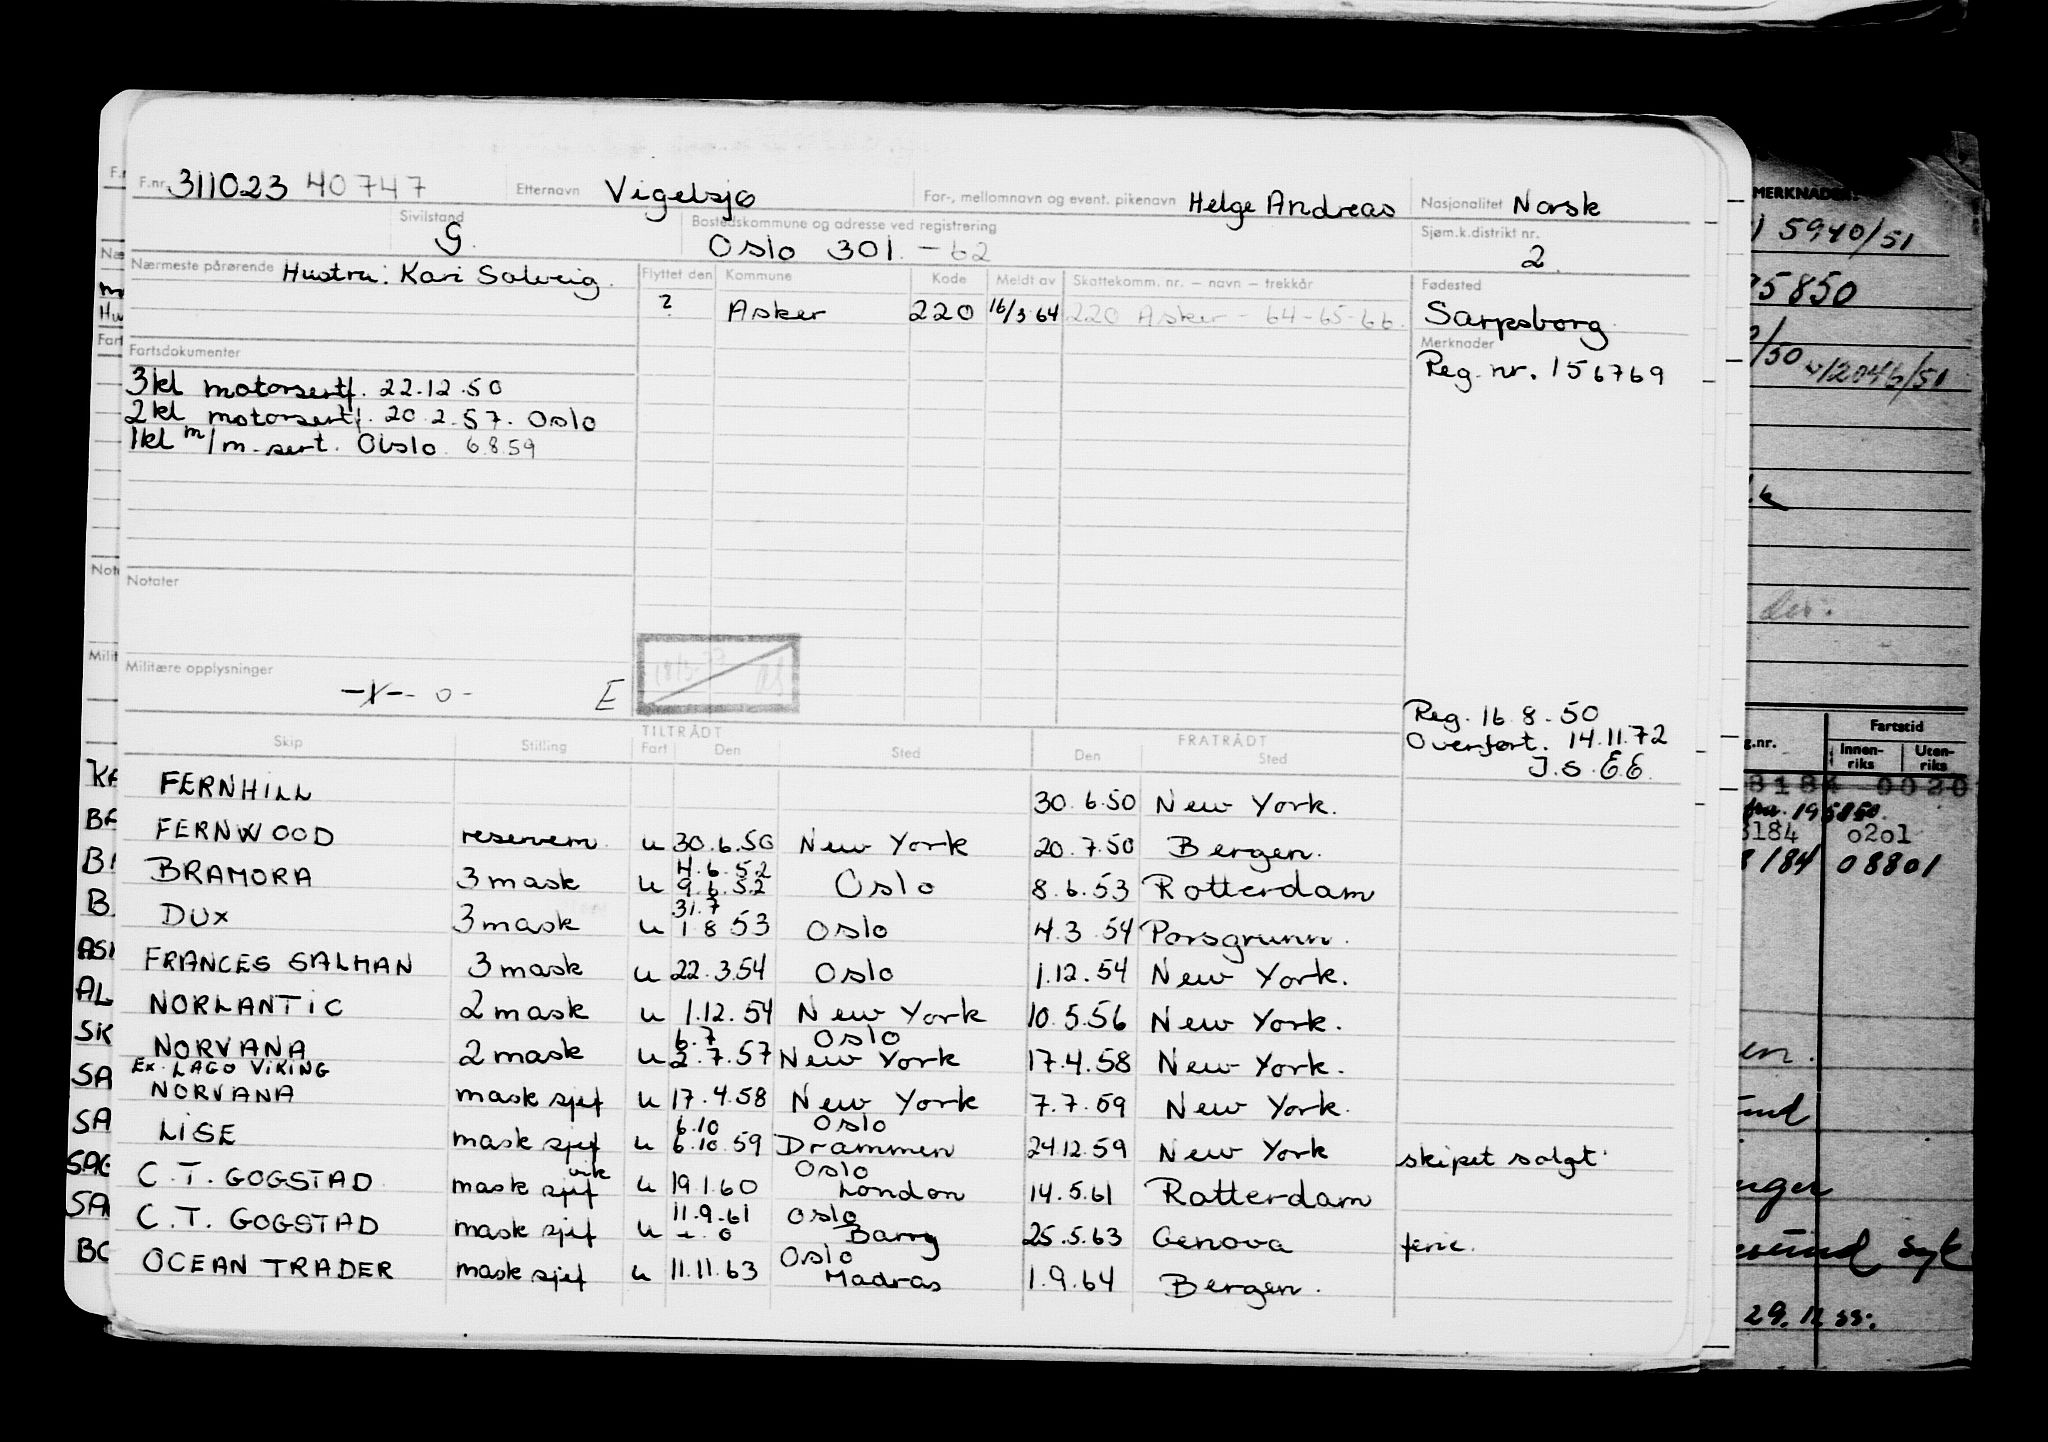 F.nr. 311023 40747 Etternavn Vigelsjø For-, mellomnavn og event. pikenavn Helge Andreas Nasjonalitet Norsk
Sivilstand G. Bostedskommune og adresse ved registrering Oslo 301. - 62 Sjøm.k.distrikt nr. 2.
Nærmeste pårørende Hustru: Kari Solveig. Flyttet den Kommune Kode Meldt av Skattekomm. nr. — navn — trekkår Fødested
? Asker 220 16/3 64 220 Asker - 64-65-66. Sarpsborg
Fartsdokumenter Merknader
Reg. nr. 156769
3kl motorsertf. 22.12.50
2kl motorsertf. 20.2.57. Oslo
1kl m/m-sert. Oslo 6.8.59
Notater
Militære opplysninger
E
Reg. 16.8.50
Overført. 14.11.72
J.S. E.E.
TILTRÅDT FRATRÅDT
Skip Stilling Fart Den Sted Den Sted
FERNHILL 30.6.50 New York.
FERNWOOD reservem u 30.6.50 New York 20.7.50 Bergen.
BRAMORA 3 mask u 4.6.52 9.6.52 Oslo 8.6.53 Rotterdam
DUX 3 mask u 31.7 1.8.53 Oslo 4.3.54 Porsgrunn.
FRANCES SALMAN 3 mask u 22.3.54 Oslo 1.12.54 New York.
NORLANTIC 2 mask u 1.12.54 New York 10.5.56 New York.
NORVANA 2 mask u 6.7 2.7.57 Oslo New York 17.4.58 New York.
Ex. LAGO VIKING
NORVANA mask sjef u 17.4.58 New York 7.7.59 New York.
LISE mask sjef u 6.10 6.10.59 Oslo Drammen 24.12.59 New York skipet solgt
C.T. GOGSTAD mask sjef vik u 19.1.60 Oslo London 14.5.61 Rotterdam
C.T. GOGSTAD mask sjef u 11.9.61 Oslo Barry 25.5.63 Genova ferie.
OCEAN TRADER mask sjef u 11.11.63 Oslo Madras 1.9.64 Bergen.
MERKNADER
5940/51
5850
/50
12046/51
Fartstid
Innen-riks Uten-riks
0020
8184 0201
8184 08801
29.11.55.